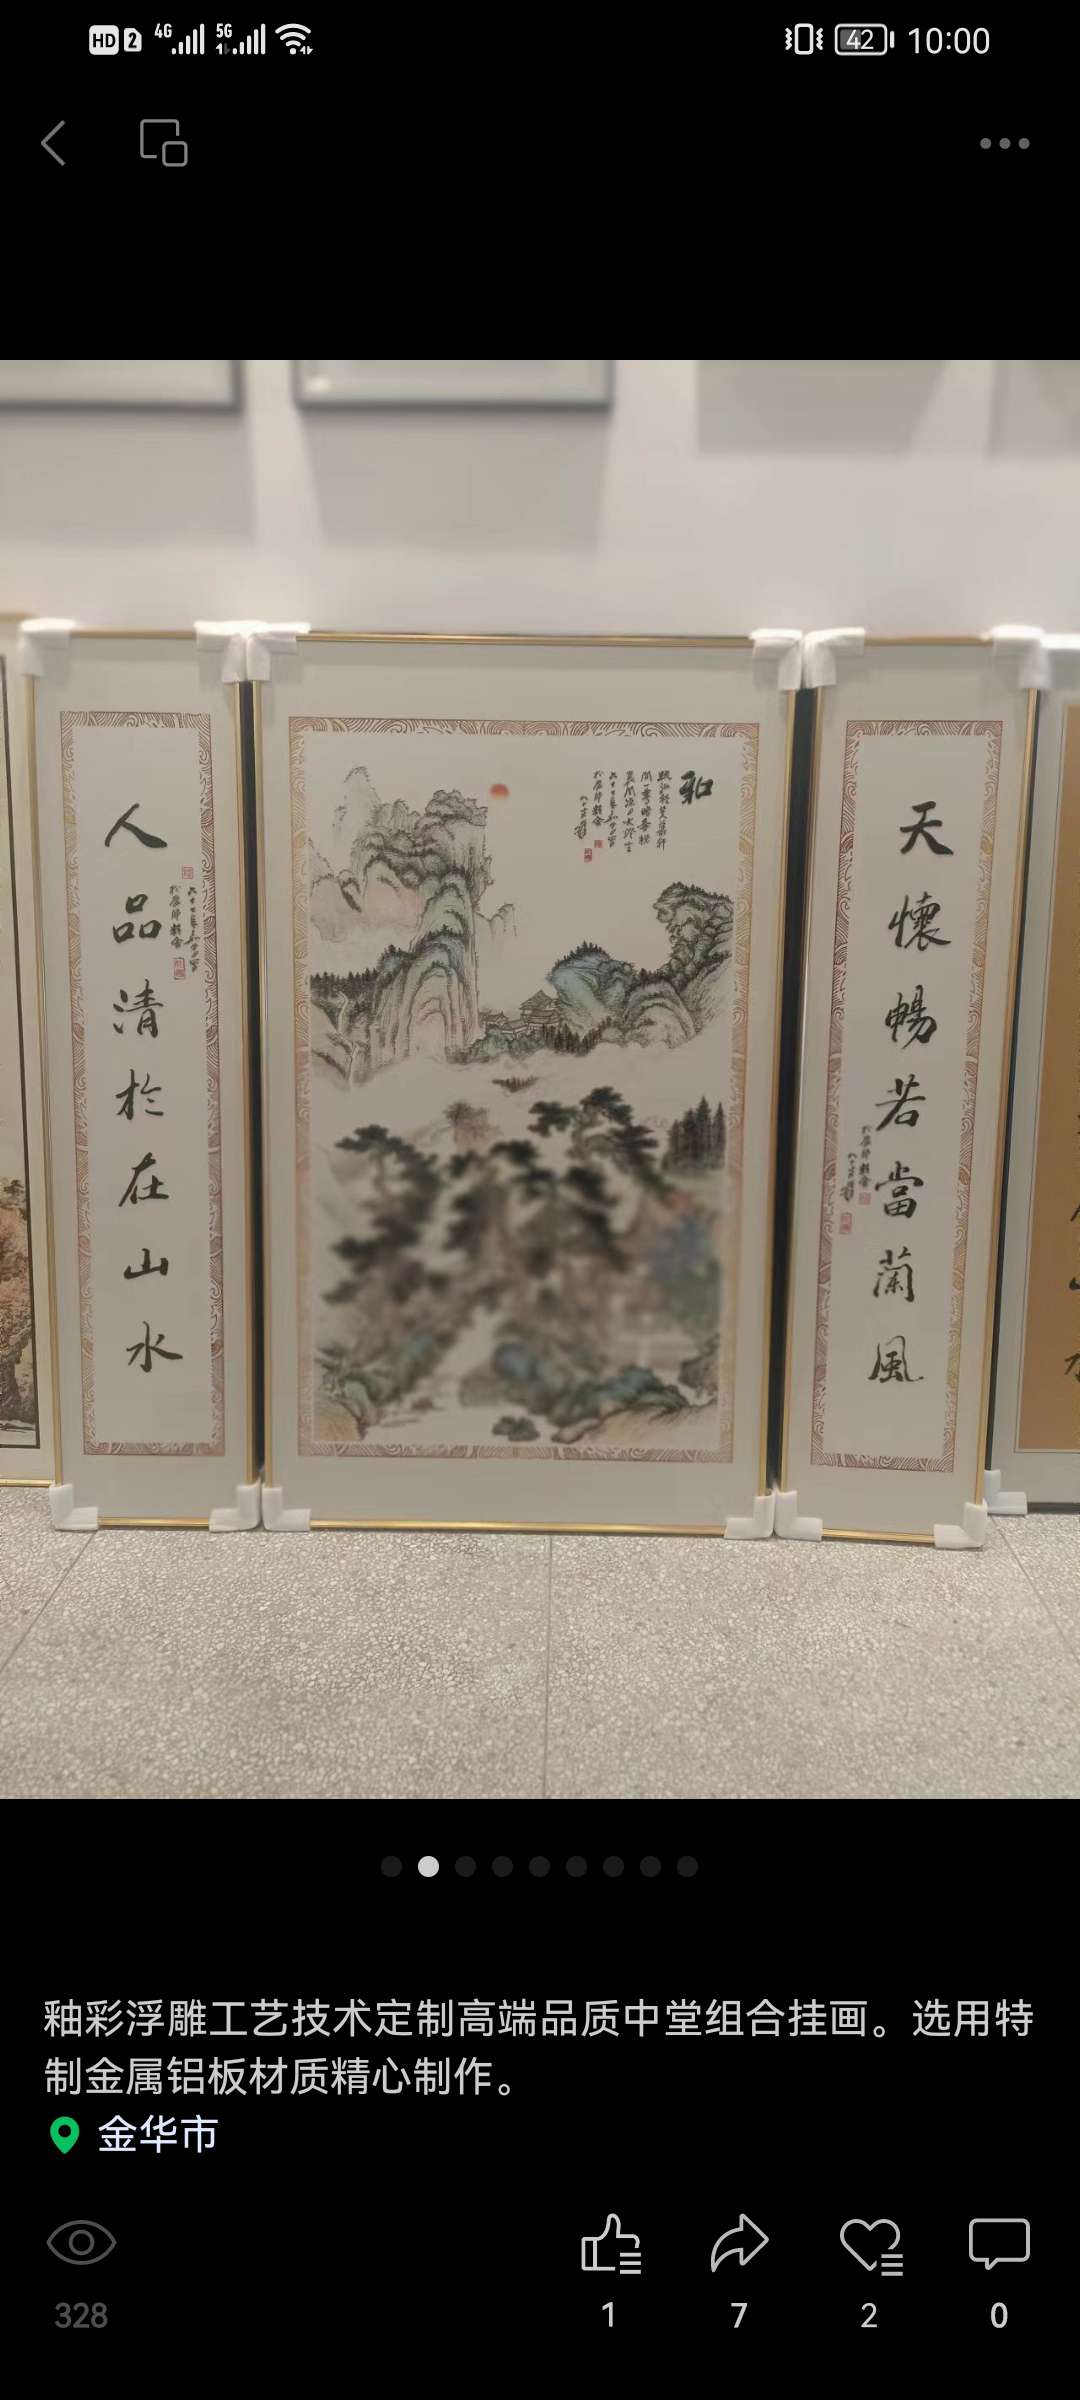 HD 2 4G 5G 42 10:00
和
天懷暢若當蘭風
人品清於在山水
釉彩浮雕工艺技术定制高端品质中堂组合挂画。选用特
制金属铝板材质精心制作。
金华市
328 1 7 2 0